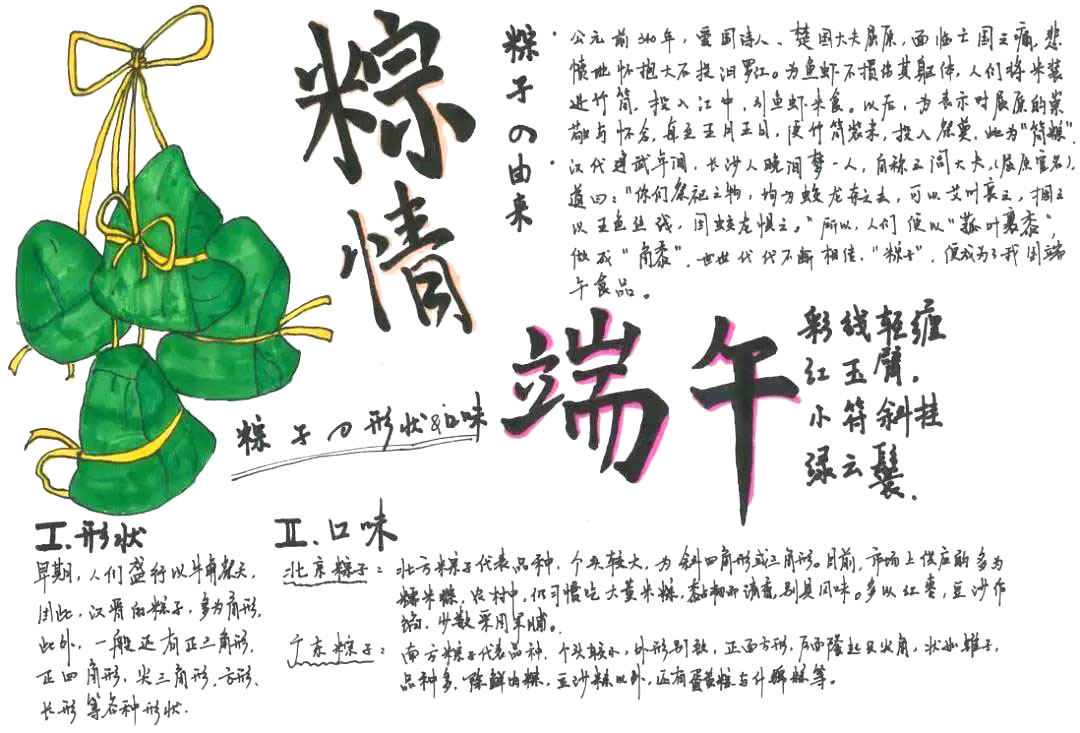 粽情
粽子の由来
· 公元前340年，爱国诗人、楚国大夫屈原，面临亡国之痛，悲
愤地怀抱大石投汨罗江。为鱼虾不损伤其躯体，人们将米装
进竹筒，投入江中，引鱼虾来食。以后，为表示对屈原的崇
敬与怀念，每至五月五日，便竹筒装米，投入祭奠，此为“筒粽”。
· 汉代建武年间，长沙人晚间梦一人，自称三闾大夫，(屈原官名)，
道曰：“你们祭祀之物，均为蛟龙夺之去，可以艾叶裹之，捆之
以五色丝线，因蛟龙惧之。”所以，人们便以“菰叶裹黍”，
做成“角黍”，世世代代不断相传，“粽子”，便成为了我国端
午食品。
端午
彩线轻缠
红玉臂，
小符斜挂
绿云鬟。
粽子の形状&口味
I.形状
早期，人们盛行以牛角祭天，
因此，汉晋的粽子，多为角形，
此外，一般还有正三角形，
正四角形，尖三角形，方形、
长形等各种形状.
II.口味
北京粽子：北方粽子代表品种，个头较大，为斜四角形或三角形。目前，市场上供应的多为
糯米粽，农村中，仍习惯吃大黄米粽，黏韧而清香，别具风味。多以红枣，豆沙作
馅，少数采用果脯。
广东粽子：南方粽子代表品种，个头较小，外形别致，正面方形，后面隆起只尖角，状如锥子，
品种多，除鲜肉粽，豆沙粽以外，还有蛋黄粽与什锦粽等。